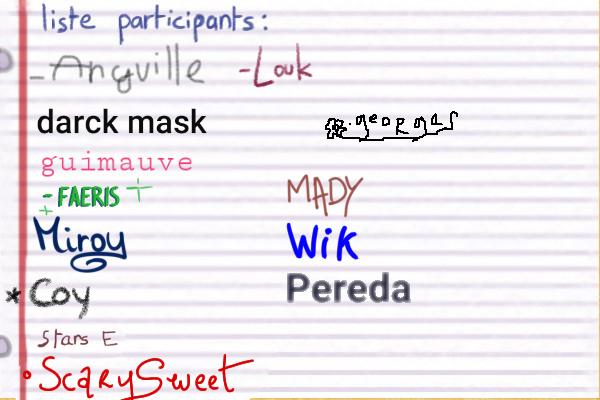 liste participants:
- Angville
- Louk
darck mask
georgas
guimauve
- FAERIS
MADY
Miroy
Wik
* Coy
Pereda
Stars E
• ScarySweet